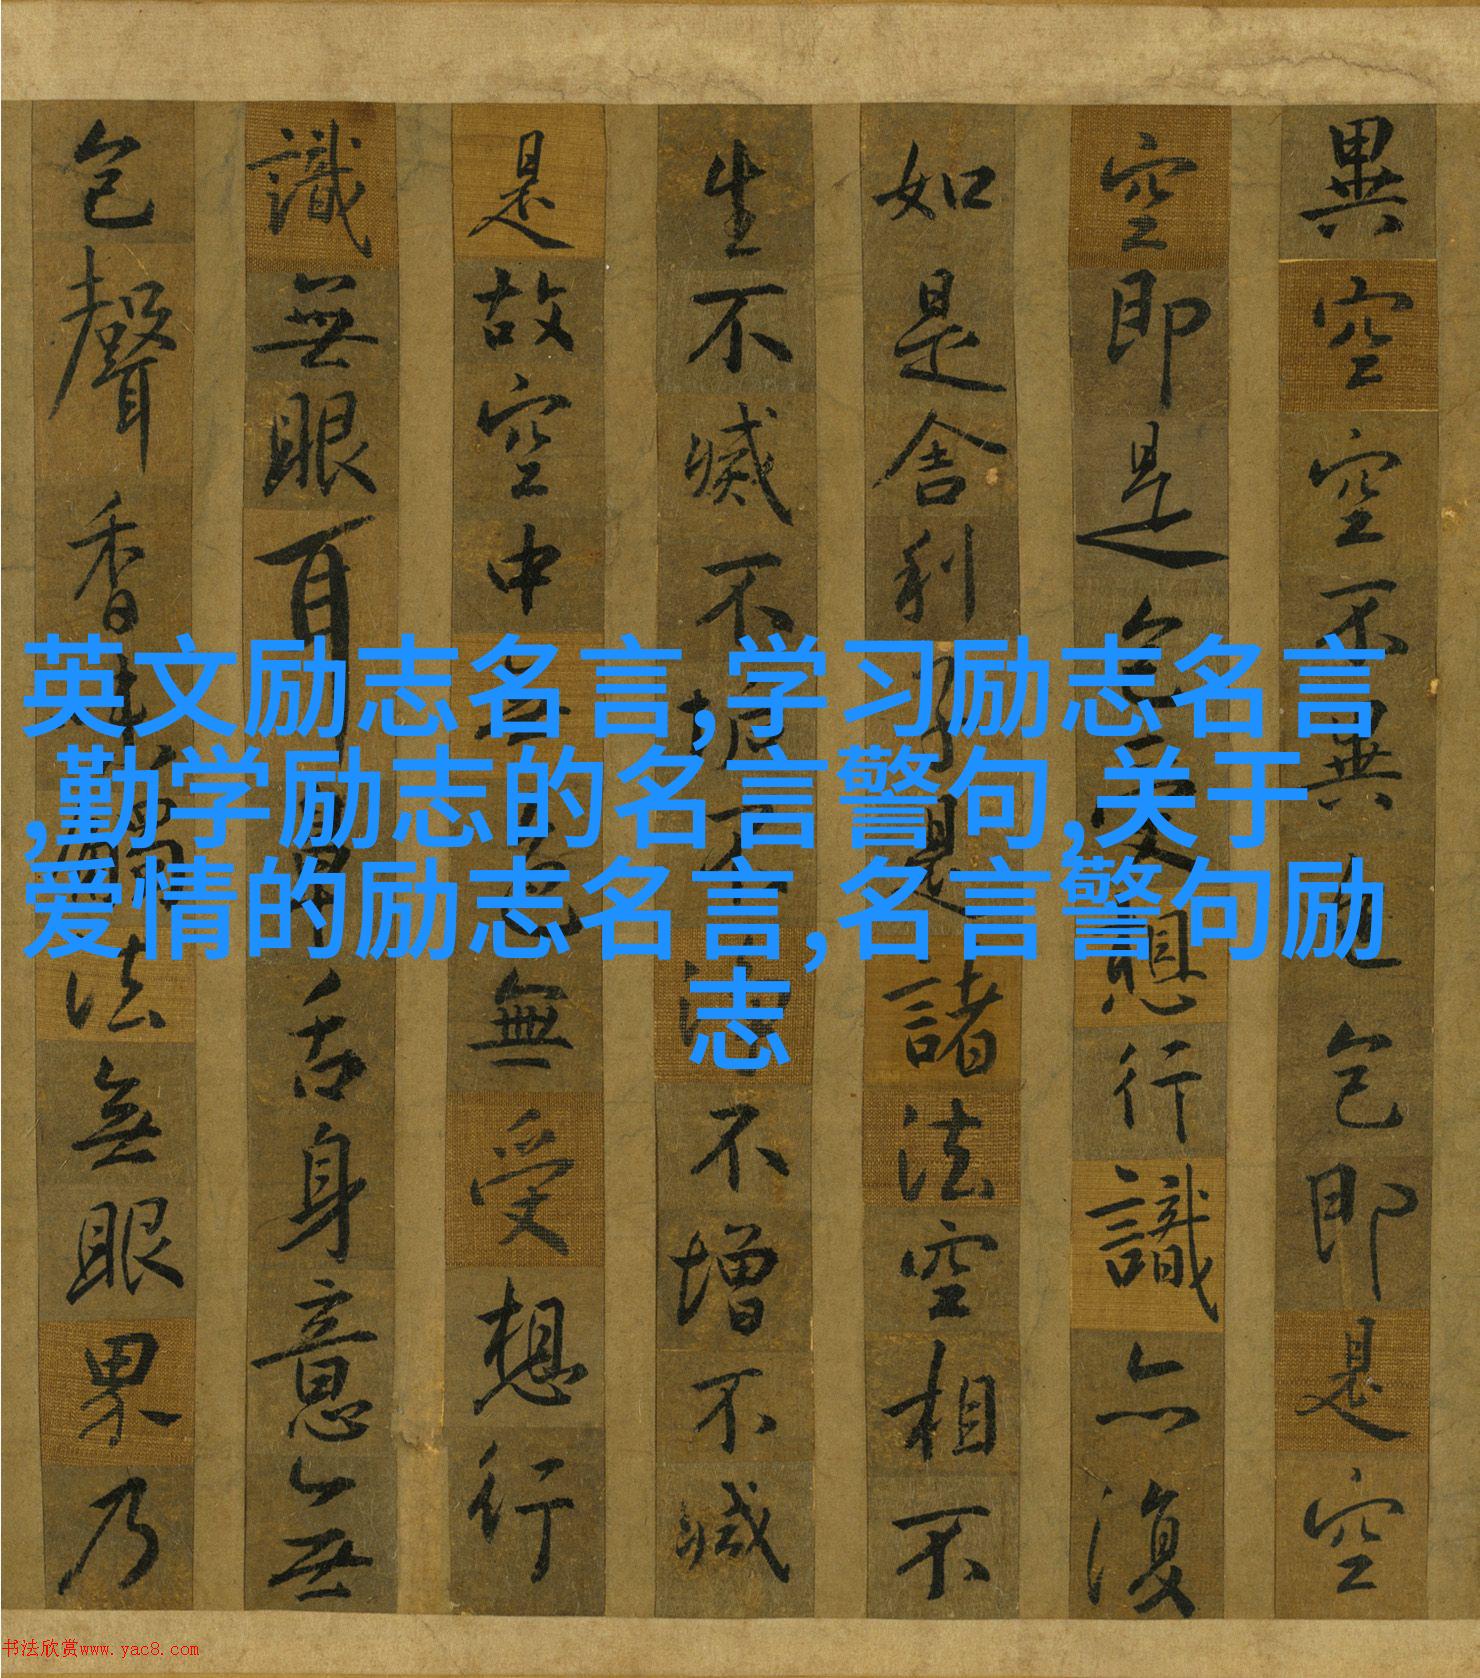 異空空不異色色即是空
空即是色受想行識亦復
如是舍利子是諸法空相不
生不滅不垢不淨不增不減
是故空中無色無受想行
識無眼耳鼻舌身意無
色聲香味觸法無眼界乃
英文励志名言,学习励志名言
,勤学励志的名言警句,关于
爱情的励志名言,名言警句励
志
书法欣赏www.yac8.com